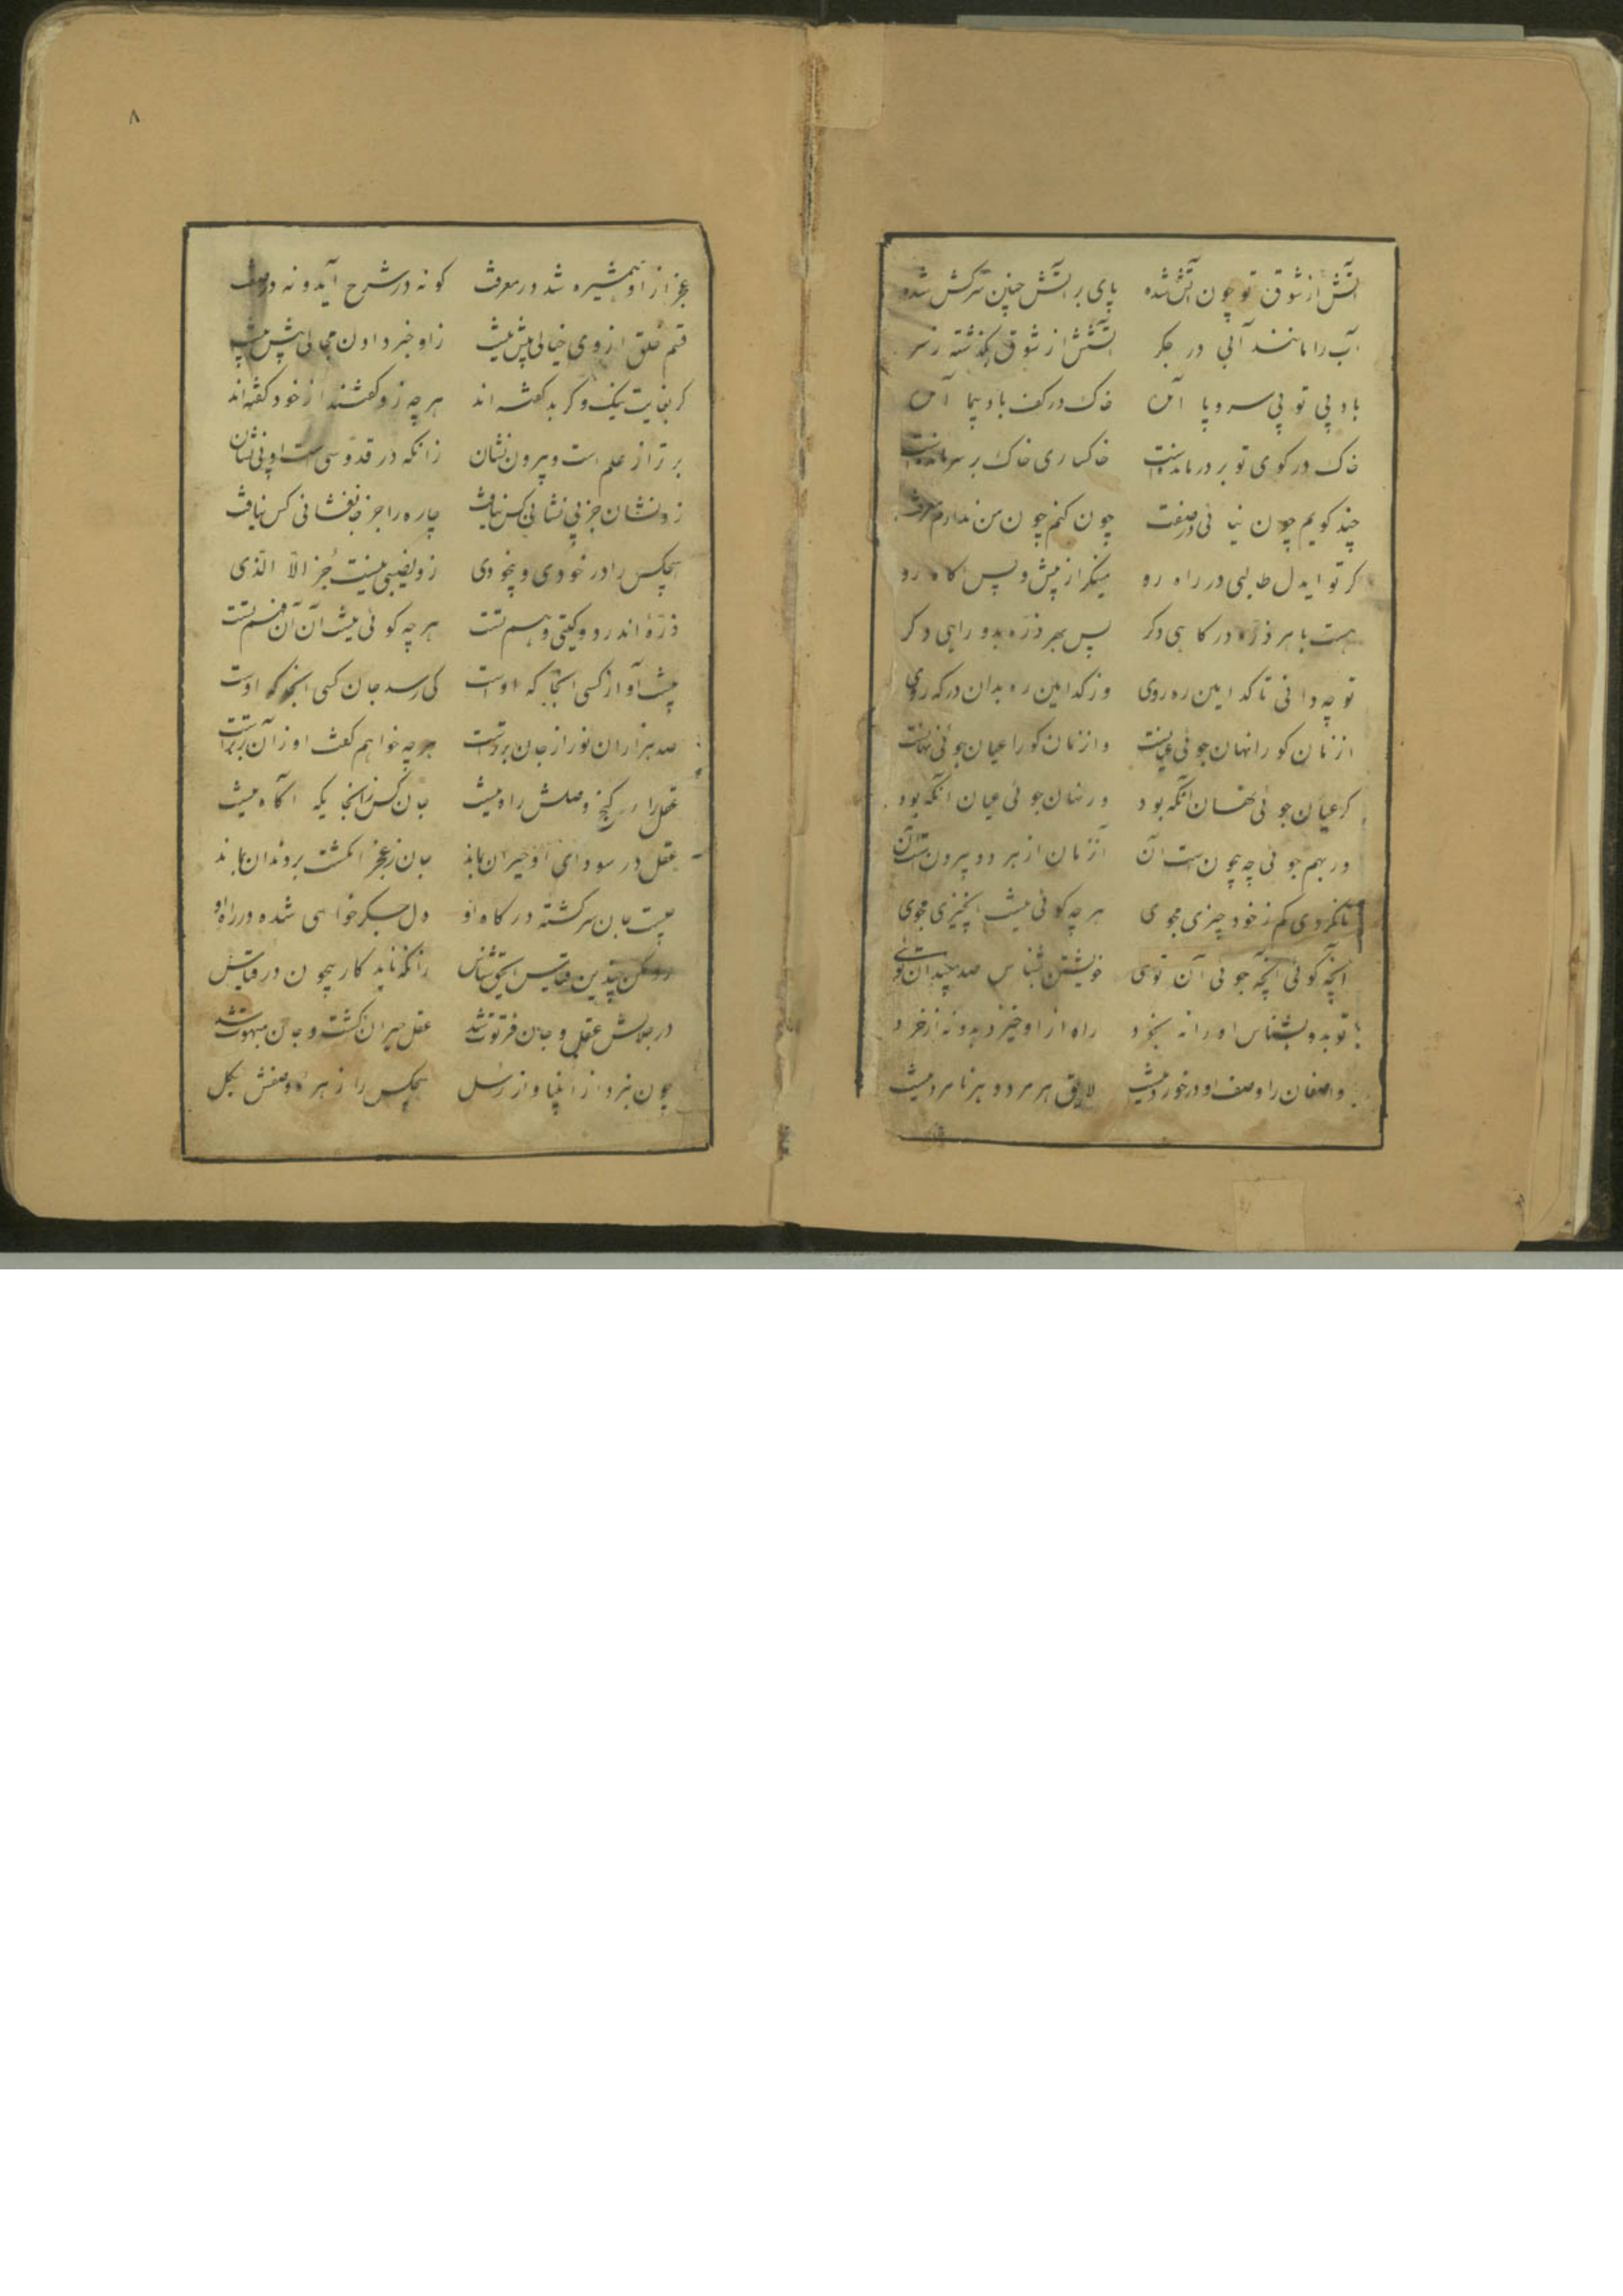 آتش از شوق تو چون آتش شده پای بر آتش چنین سرکش شده
آب را مانند آبی در جکر آتشش از شوق بگذشته ز سر
باد بی تو بی سر و پا آمده خاک در کف باد پیما آمده
خاک در کوی تو بر در مانده است خاکساری خاک بر سر مانده است
چند کویم چون نیائی در صفت چون کنم چون من ندارم معرفت
کر تو ایدل طالبی در راه رو مینکر از پیش و پس آکاه رو
هست با هر ذره درکاهی دکر پس بهر ذره بدو راهی دکر
تو چه دانی تا کدامین ره روی وز کدامین ره بدان درکه روی
آن زمان کو را نهان جوئی عیانست و آن زمان کو را عیان جوئی نهانست
کر عیان جوئی نهان آنکه بود ور نهان جوئی عیان آنکه بود
ور بهم جوئی چو بیچون است آن آن زمان از هر دو بیرون است آن
تا نکردی کم ز خود چیزی مجوی هر چه کوئی نیست آن چیزی مجوی
آنچه کوئی آنچه جوئی آن توی خویشتن بشناس صد چندان توئی
تو بدو بشناس او را نه بخود راه از او خیزد بدو نه از خرد
واصفان را وصف او در خورد نیست لایق هر مرد و هر نامرد نیست
عجز از او همشیره شد در معرفت کو نه در شرح آید و نه در صفت
قسم خلق از وی خیالی بیش نیست زو خبر دادن محالی بیش نیست
کر بغایت نیک و کر بد کفته اند هر چه زو کفتند از خود کفته اند
برتر از علم است و بیرون نشان زانکه در قدوسی است او بی نشان
زو نشان جز بی نشانی کس نیافت چاره را جز جانفشانی کس نیافت
هیچکس را در خودی و بیخودی زو نصیبی نیست جز الا الذی
ذره اندر دو کیتی وهم تست هر چه کوئی نیست آن آن فهم تست
نیست آواز کسی آنجا که اوست کی رسد جان کسی آنجا که اوست
صد هزاران نور از جان برترست هر چه خواهم کفت او زآن برترست
عقل را در کنج وصلش راه نیست جان کس زآنجایکه آکاه نیست
عقل در سودای او حیران بماند جان ز عجز انکشت بر دندان بماند
چیست جان سرکشته درکاه او دل جکر خواهی شده در راه او
رو مکن چندین قیاس ایحق شناس زانکه ناید کار بیچون در قیاس
در جلالش عقل و جان فرتوت شد عقل حیران کشت و جان مبهوت شد
چون نبرد از انبیا و از رسل هیچکس را زهره وصفش بکل